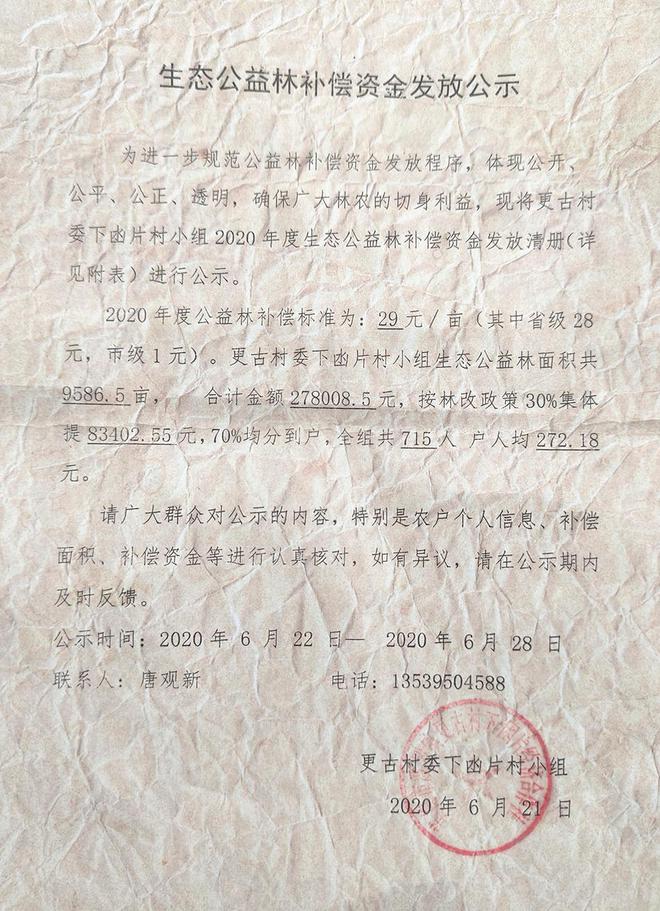 生态公益林补偿资金发放公示
为进一步规范公益林补偿资金发放程序，体现公开、
公平、公正、透明，确保广大林农的切身利益，现将更古村
委下凼片村小组2020年度生态公益林补偿资金发放清册（详
见附表）进行公示。
2020年度公益林补偿标准为：29元/亩（其中省级28
元，市级1元）。更古村委下凼片村小组生态公益林面积共
9586.5亩， 合计金额278008.5元，按林改政策30%集体
提83402.55元，70%均分到户，全组共715人 户人均272.18
元。
请广大群众对公示的内容，特别是农户个人信息、补偿
面积、补偿资金等进行认真核对，如有异议，请在公示期内
及时反馈。
公示时间：2020年 6 月 22 日— 2020年6月28 日
联系人：唐观新 电话：13539504588
更古村委下凼片村小组
2020年 6 月 21日